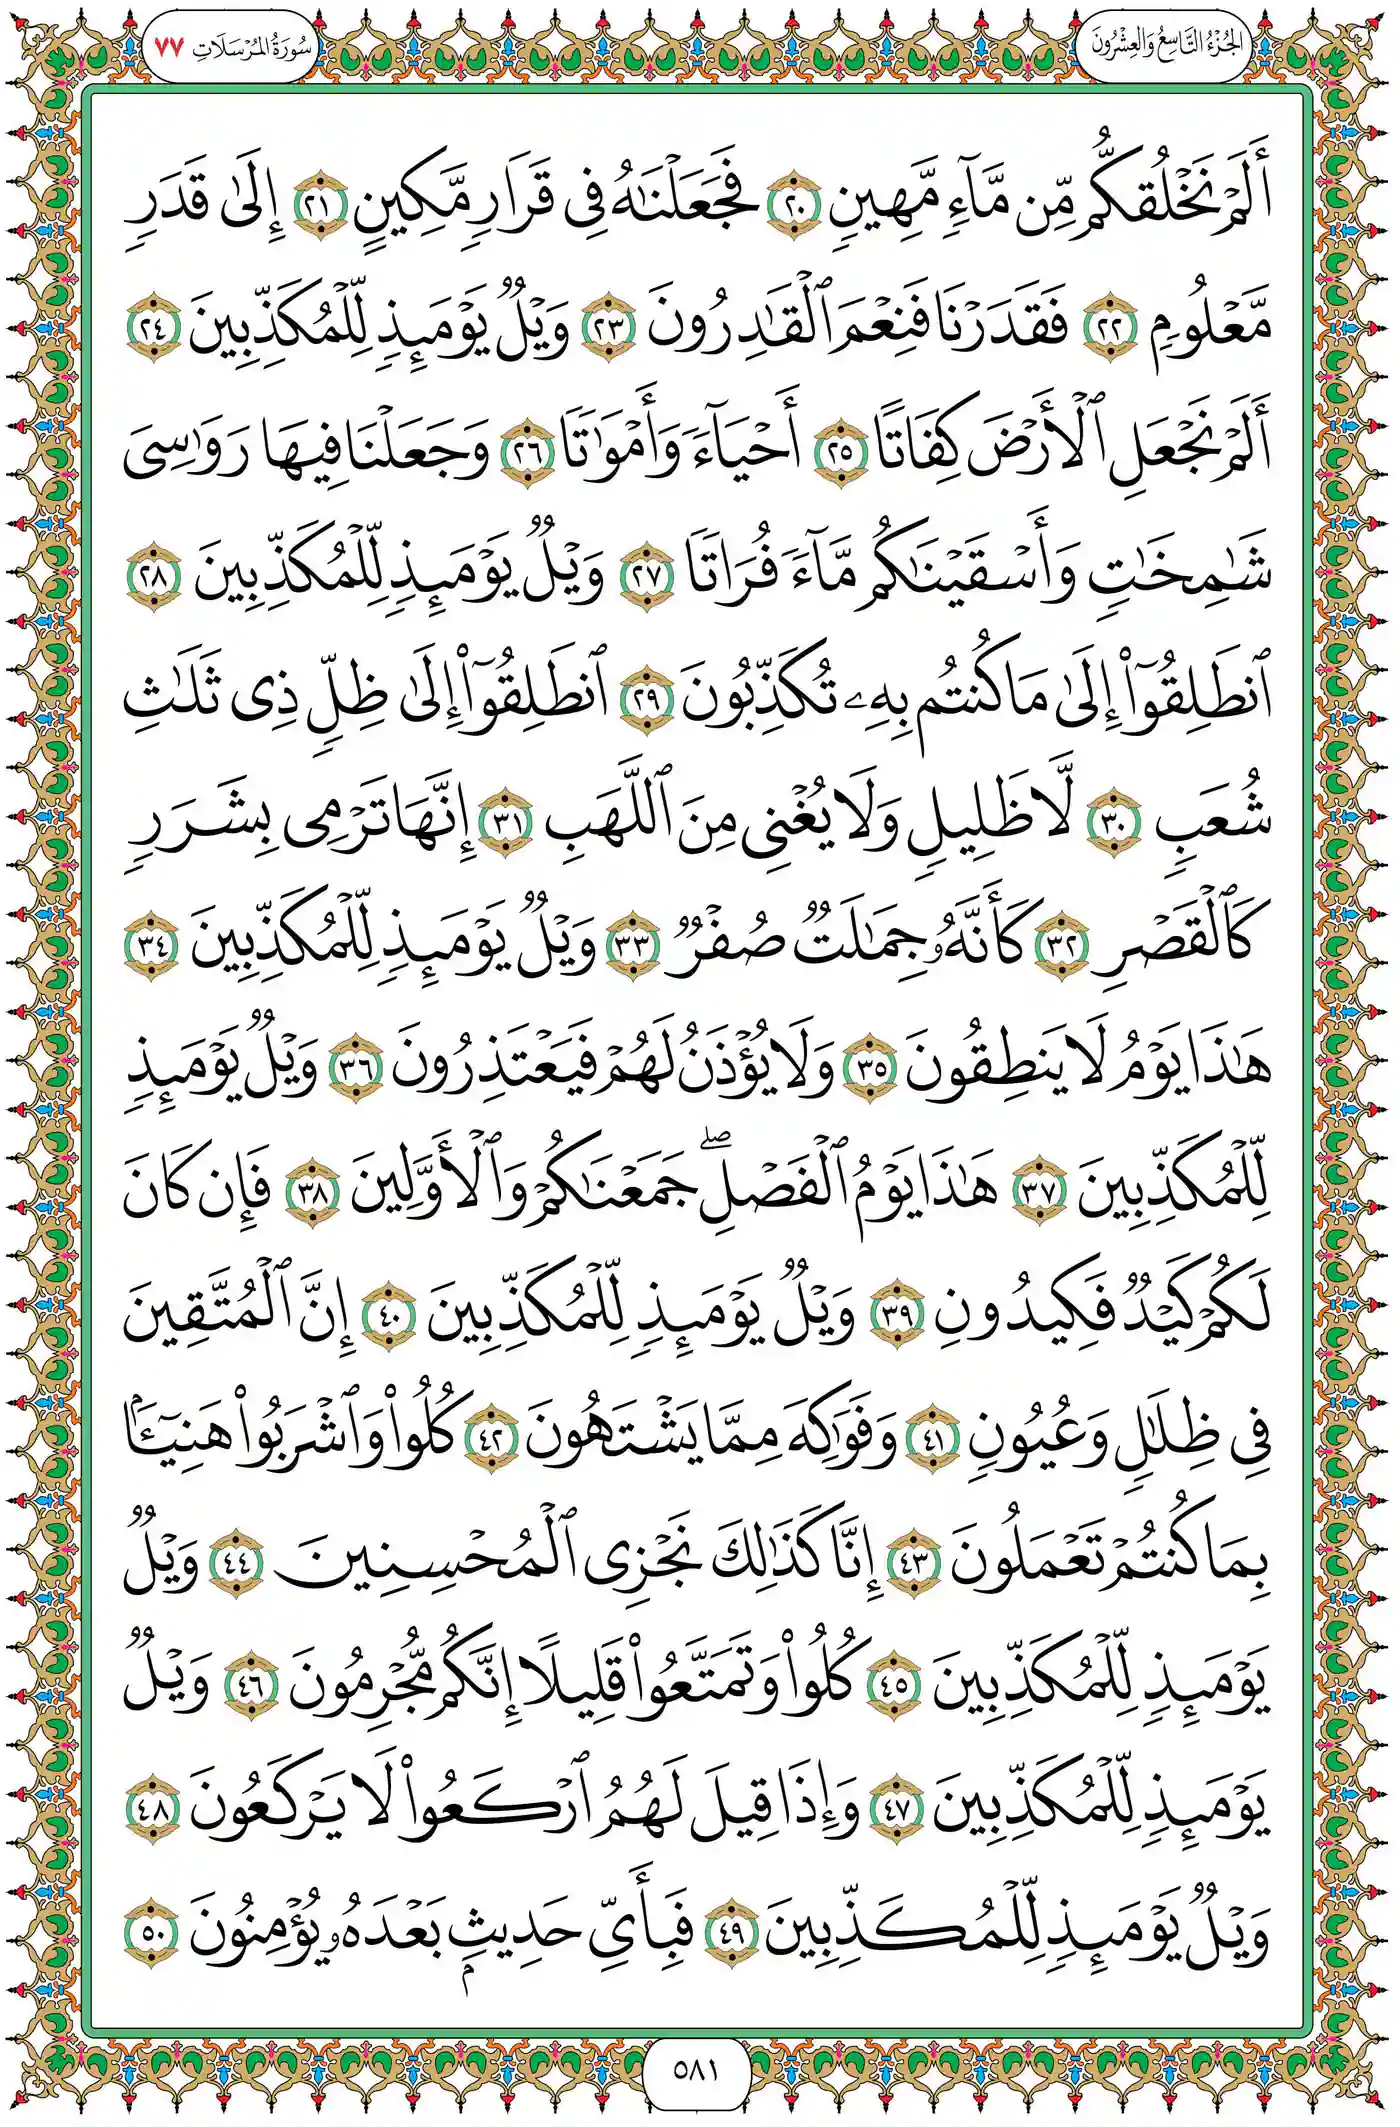 الجزء التاسع والعشرون
سورة المرسلات ٧٧
أَلَمْ نَخْلُقكُّم مِّن مَّآءٍ مَّهِينٍ ٢٠ فَجَعَلْنَٰهُ فِى قَرَارٍ مَّكِينٍ ٢١ إِلَىٰ قَدَرٍ
مَّعْلُومٍ ٢٢ فَقَدَرْنَا فَنِعْمَ ٱلْقَٰدِرُونَ ٢٣ وَيْلٌ يَوْمَئِذٍ لِّلْمُكَذِّبِينَ ٢٤
أَلَمْ نَجْعَلِ ٱلْأَرْضَ كِفَاتًا ٢٥ أَحْيَآءً وَأَمْوَٰتًا ٢٦ وَجَعَلْنَا فِيهَا رَوَٰسِىَ
شَٰمِخَٰتٍ وَأَسْقَيْنَٰكُم مَّآءً فُرَاتًا ٢٧ وَيْلٌ يَوْمَئِذٍ لِّلْمُكَذِّبِينَ ٢٨
ٱنطَلِقُوٓا۟ إِلَىٰ مَا كُنتُم بِهِۦ تُكَذِّبُونَ ٢٩ ٱنطَلِقُوٓا۟ إِلَىٰ ظِلٍّ ذِى ثَلَٰثِ
شُعَبٍ ٣٠ لَّا ظَلِيلٍ وَلَا يُغْنِى مِنَ ٱللَّهَبِ ٣١ إِنَّهَا تَرْمِى بِشَرَرٍ
كَٱلْقَصْرِ ٣٢ كَأَنَّهُۥ جِمَٰلَتٌ صُفْرٌ ٣٣ وَيْلٌ يَوْمَئِذٍ لِّلْمُكَذِّبِينَ ٣٤
هَٰذَا يَوْمُ لَا يَنطِقُونَ ٣٥ وَلَا يُؤْذَنُ لَهُمْ فَيَعْتَذِرُونَ ٣٦ وَيْلٌ يَوْمَئِذٍ
لِّلْمُكَذِّبِينَ ٣٧ هَٰذَا يَوْمُ ٱلْفَصْلِ ۖ جَمَعْنَٰكُمْ وَٱلْأَوَّلِينَ ٣٨ فَإِن كَانَ
لَكُمْ كَيْدٌ فَكِيدُونِ ٣٩ وَيْلٌ يَوْمَئِذٍ لِّلْمُكَذِّبِينَ ٤٠ إِنَّ ٱلْمُتَّقِينَ
فِى ظِلَٰلٍ وَعُيُونٍ ٤١ وَفَوَٰكِهَ مِمَّا يَشْتَهُونَ ٤٢ كُلُوا۟ وَٱشْرَبُوا۟ هَنِيٓـًٔۢا
بِمَا كُنتُمْ تَعْمَلُونَ ٤٣ إِنَّا كَذَٰلِكَ نَجْزِى ٱلْمُحْسِنِينَ ٤٤ وَيْلٌ
يَوْمَئِذٍ لِّلْمُكَذِّبِينَ ٤٥ كُلُوا۟ وَتَمَتَّعُوا۟ قَلِيلًا إِنَّكُم مُّجْرِمُونَ ٤٦ وَيْلٌ
يَوْمَئِذٍ لِّلْمُكَذِّبِينَ ٤٧ وَإِذَا قِيلَ لَهُمُ ٱرْكَعُوا۟ لَا يَرْكَعُونَ ٤٨
وَيْلٌ يَوْمَئِذٍ لِّلْمُكَذِّبِينَ ٤٩ فَبِأَىِّ حَدِيثٍۭ بَعْدَهُۥ يُؤْمِنُونَ ٥٠
٥٨١